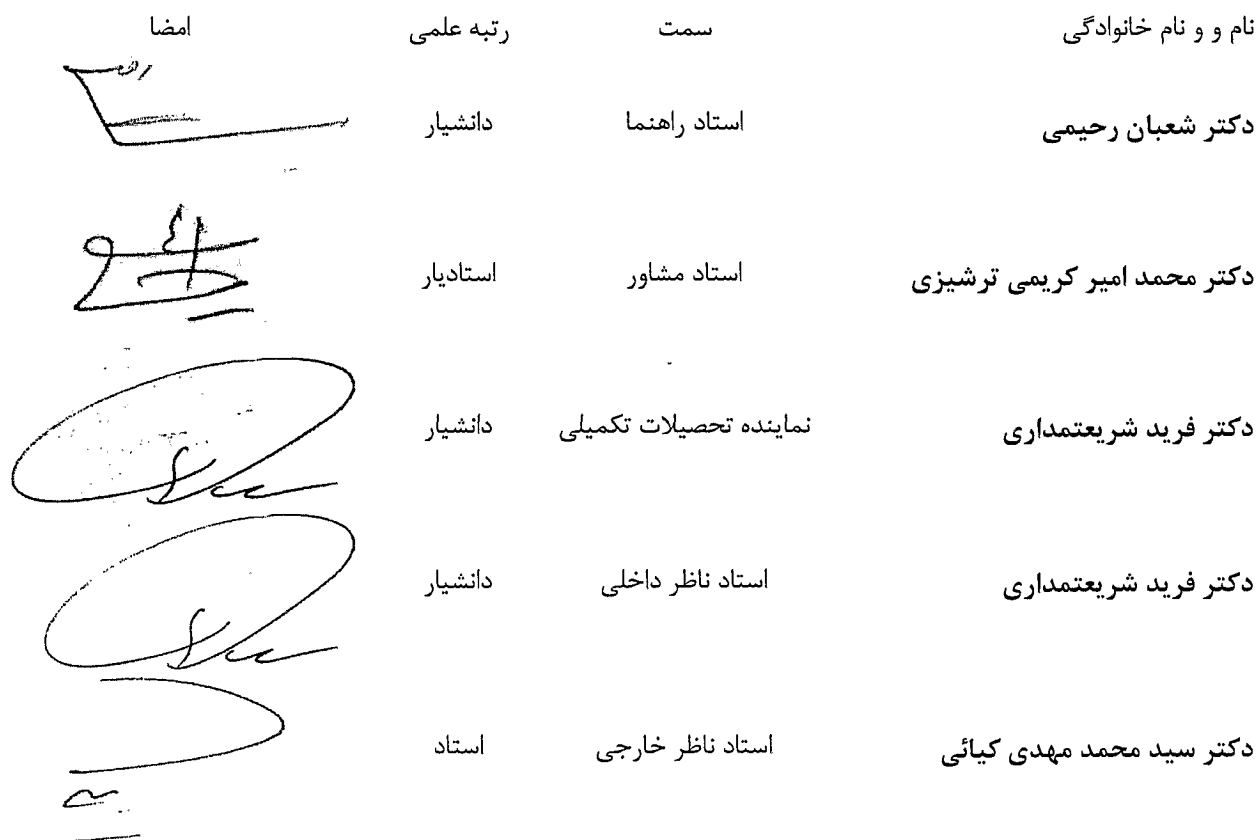 نام و و نام خانوادگی سمت رتبه علمی امضا
دکتر شعبان رحیمی استاد راهنما دانشیار
دکتر محمد امیر کریمی ترشیزی استاد مشاور استادیار
دکتر فرید شریعتمداری نماینده تحصیلات تکمیلی دانشیار
دکتر فرید شریعتمداری استاد ناظر داخلی دانشیار
دکتر سید محمد مهدی کیائی استاد ناظر خارجی استاد